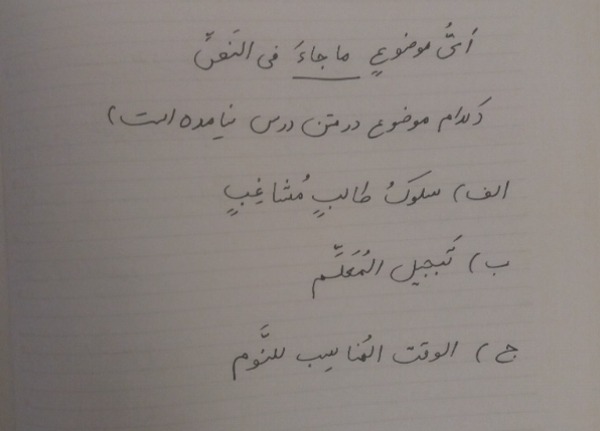 أَیُّ موضوعٍ ما جاءَ فی النَصِّ
(کدام موضوع در متن درس نیامده است)
الف) سلوکُ طالبٍ مُشاغِبٍ
ب) تَبجیل المُعَلِّم
ج) الوقت المُناسِب للنَّوم